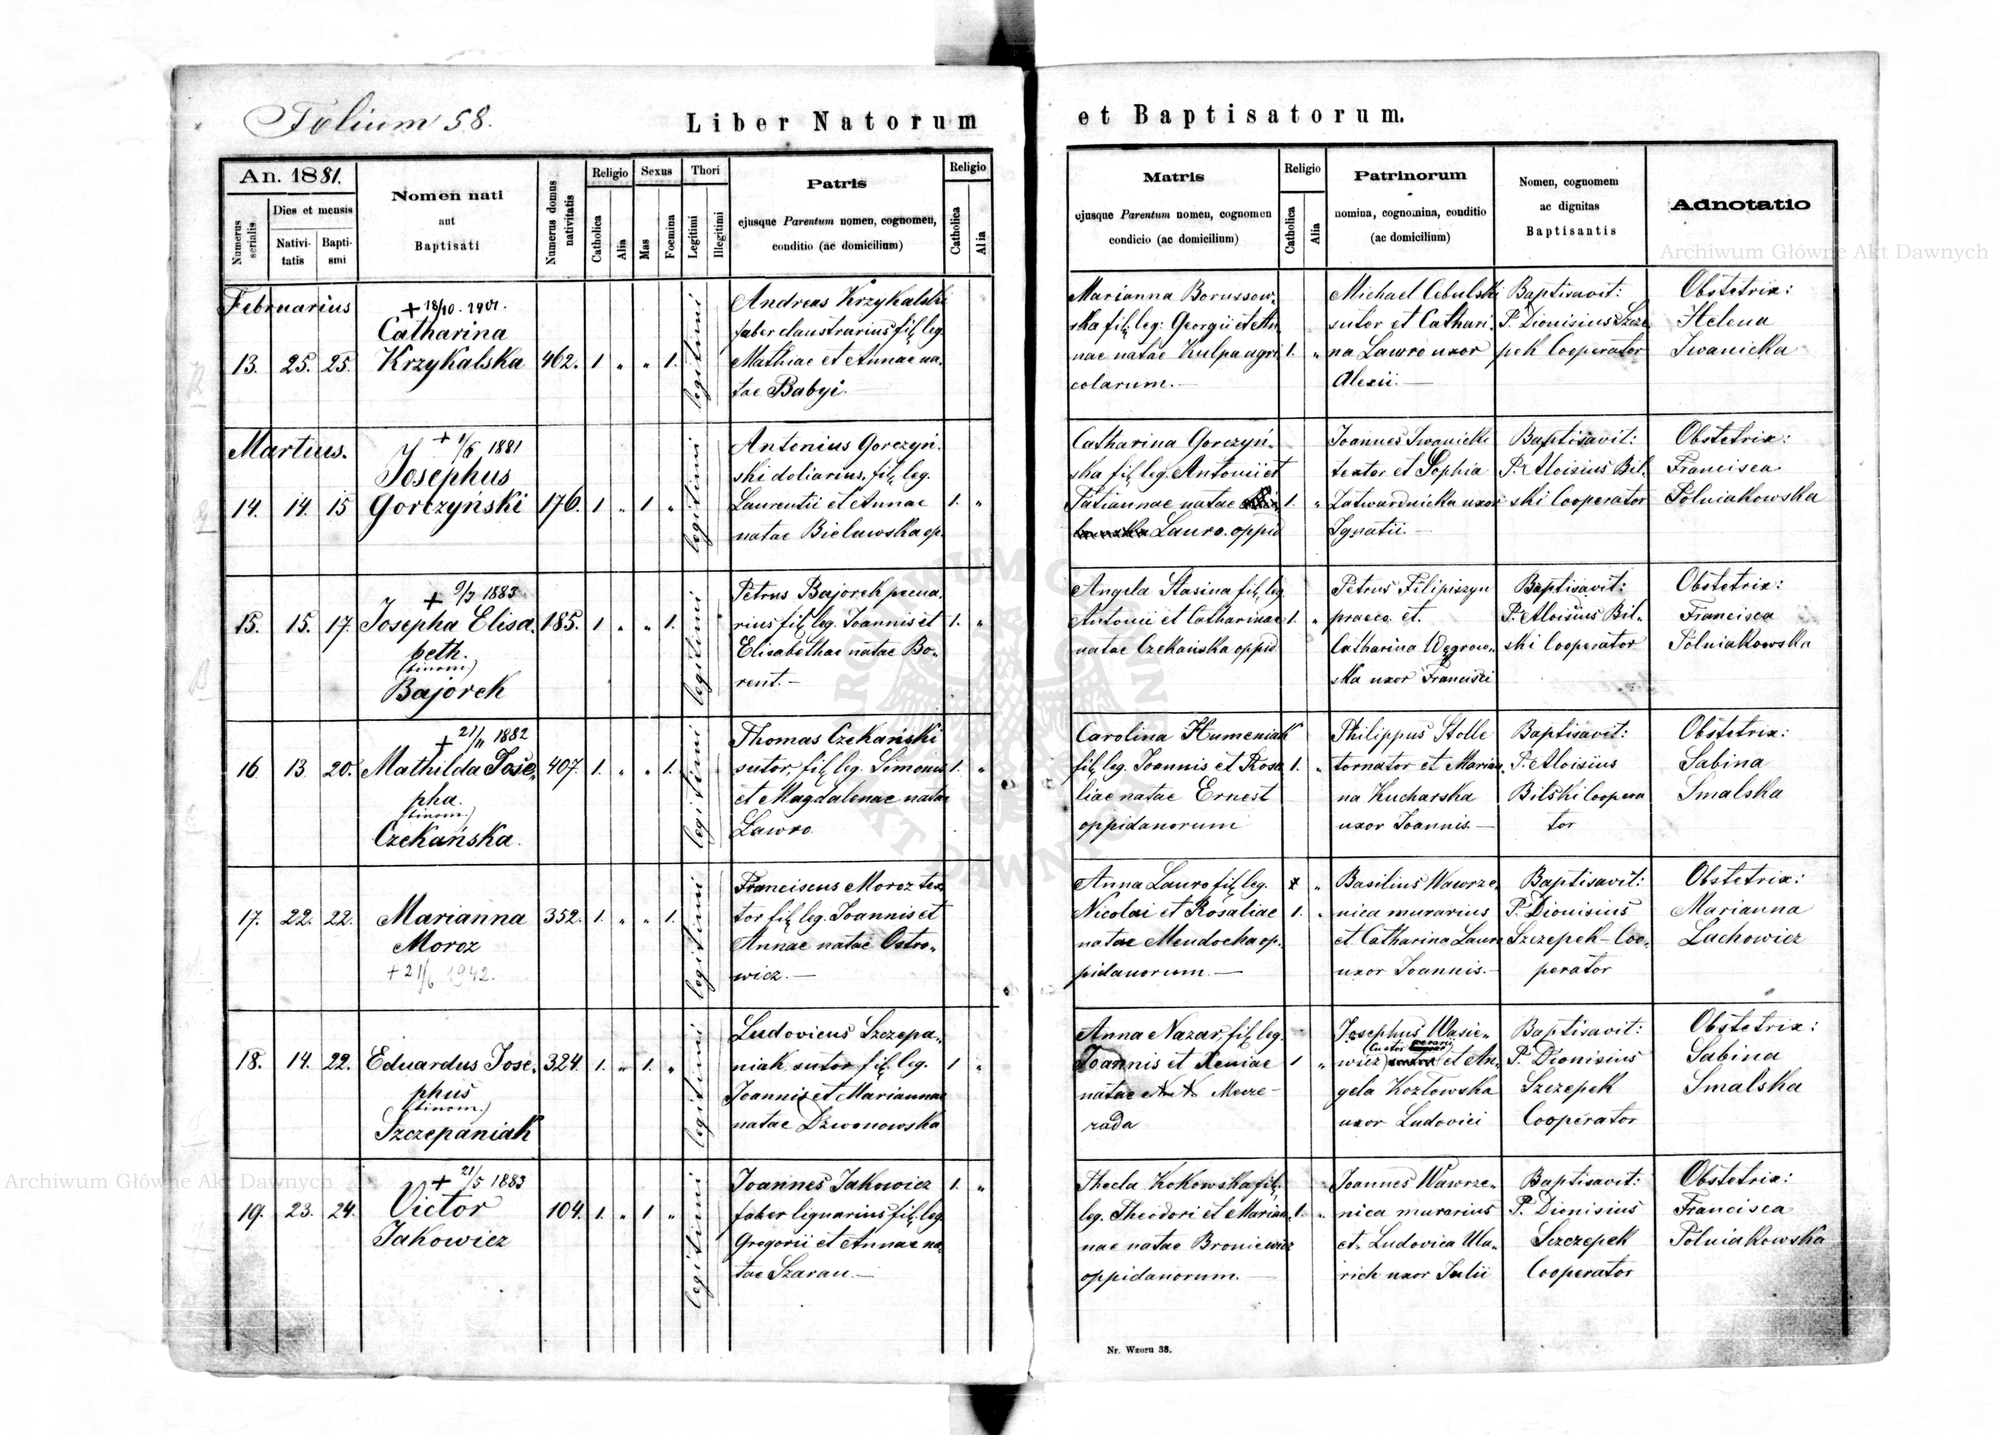 Folium 58.
Liber Natorum et Baptisatorum.
An. 1881.
Numerus serialis
Dies et mensis
Nativi-
tatis
Bapti-
smi
Nomen nati
aut
Baptisati
Numerus domus
nativitatis
Religio
Catholica
Alia
Sexus
Mas
Foemina
Thori
Legitimi
Illegitimi
Patris
ejusque Parentum nomen, cognomen,
conditio (ac domicilium)
Religio
Catholica
Alia
Matris
ejusque Parentum nomen, cognomen
condicio (ac domicilium)
Religio
Catholica
Alia
Patrinorum
nomina, cognomina, conditio
(ac domicilium)
Nomen, cognomem
ac dignitas
Baptisantis
Adnotatio
Februarius
13. 25. 25.
+ 18/10. 1901.
Catharina
Krzykalska
462. 1 " " 1.
legitimi
Andreas Krzykalski
faber claustrarius fil. leg.
Mathiae et Annae na-
tae Babyi.
Marianna Borussow-
ska fil. leg. Georgii et An
nae natae Kulpa agri
colarum.
1. "
Michael Cebulski
sutor et Cathari-
na Lawro uxor
Alexii.
Baptisavit:
P. Dionisius Szcze
pek Cooperator
Obstetrix:
Helena
Iwanicka
Martius.
14. 14. 15
+ 1/6 1881
Josephus
Gorczyński
176. 1 " 1 "
legitimi
Antonius Gorczyń-
ski doliarius, fil. leg.
Laurentii et Annae
natae Bielawska op.
1. "
Catharina Gorczyń-
ska fil. leg. Antonii et
Tatiannae natae
Lauro. oppid
1. "
Joannes Iwanicki
textor et Sophia
Zatwardnicka uxor
Ignatii.
Baptisavit:
P. Aloisius Bil-
ski Cooperator
Obstetrix:
Francisca
Polniakowska
15. 15. 17.
+ 9/7 1883
Josepha Elisa-
beth.
(binom.)
Bajorek
185. 1 " " 1.
legitimi
Petrus Bajorek
rius fil. leg. Joannis et
Elisabethae natae Bo-
rent.
1. "
Angela Stasina fil. leg
Antonii et Catharinae
natae Czekańska oppid
1. "
Petrus Filipiszyn
praeco et
Catharina Węgrow-
ska uxor Francisci
Baptisavit:
P. Aloisius Bil-
ski Cooperator
Obstetrix:
Francisca
Polniakowska
16. 13. 20.
+ 21/11 1882
Mathilda Jose-
pha.
(binom.)
Czekańska.
407. 1. " " 1.
legitimi
Thomas Czekański
sutor, fil. leg. Simonis
et Magdalenae natae
Lawro
1. "
Carolina Humeniak
fil. leg. Joannis et Rosa
liae natae Ernest
oppidanorum
1. "
Philippus Stolle
tornator et Marian-
na Kucharska
uxor Joannis.
Baptisavit:
P. Aloisius
Bilski Coopera
tor
Obstetrix:
Sabina
Smalska
17. 22. 22.
Marianna
Moroz
+ 21/6 1942.
352. 1. " " 1.
legitimi
Franciscus Moroz tex
tor fil. leg. Joannis et
Annae natae Ostro-
wicz.
Anna Lauro fil. leg.
Nicolai et Rosaliae
natae Mendocha op.
pidanorum.
1. "
Basilius Wawrze-
nica murarius
et Catharina Lauro
uxor Joannis.
Baptisavit:
P. Dionisius
Szczepek Coo-
perator
Obstetrix:
Marianna
Lachowicz
18. 14. 22.
Eduardus Jose-
phus
(binom.)
Szczepaniak
324. 1. " 1. "
legitimi
Ludovicus Szczepa-
niak sutor fil. leg.
Joannis et Mariannae
natae Dzwonowska
1 "
Anna Nazar, fil. leg.
Joannis et Xeniae
natae N. N. Mecze-
rada
1 "
Josephus Wasie-
wicz et An-
gela Kozłowska
uxor Ludovici
Baptisavit:
P. Dionisius
Szczepek
Cooperator
Obstetrix:
Sabina
Smalska
19. 23. 24.
+ 21/5 1883
Victor
Jakowicz
104. 1. " 1 "
legitimi
Joannes Jakowicz
faber lignarius fil. leg
Gregorii et Annae na-
tae Szaran.
1. "
Thecla Kokowska fil.
leg. Theodori et Marian-
nae natae Broniewicz
oppidanorum.
1. "
Joannes Wawrze-
nica murarius
et Ludovica Ula-
rich uxor Julii
Baptisavit:
P. Dionisius
Szczepek
Cooperator
Obstetrix:
Francisca
Polniakowska
Nr. Wzoru 38.
Archiwum Główne Akt Dawnych
Archiwum Główne Akt Dawnych
ARCHIWUM GŁÓWNE AKT DAWNYCH